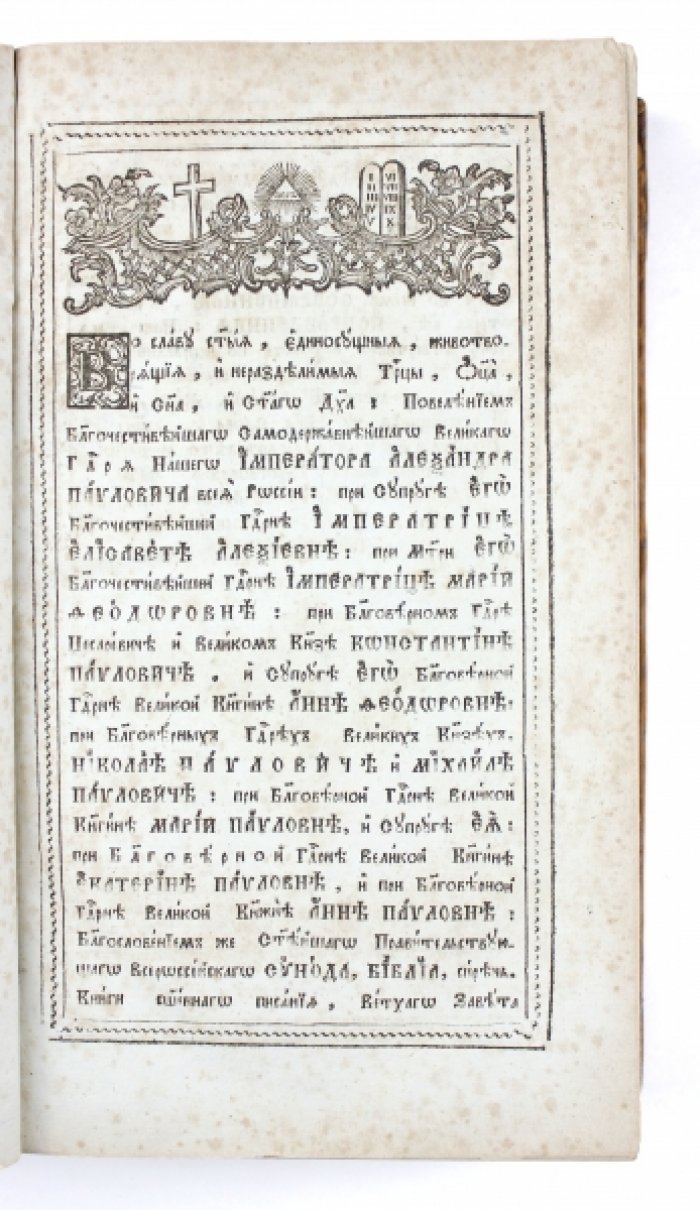 I II III IV V VI VII VIII IX X
Во славу ст҃ыѧ, є҆диносу́щныѧ, животво-
рѧ́щїѧ, и҆ нераздѣ́лимыѧ Трⷪ҇цы, Ѻ҆ц҃а̀,
и҆ Сн҃а, и҆ Ст҃а́гѡ Дх҃а: Повелѣ́нїемъ
Бл҃гочести́вѣйшагѡ Самодержа́внѣйшагѡ Вели́кагѡ
Гдⷭ҇рѧ На́шегѡ І҆МПЕРА́ТОРА А҆ЛЕѮА́НДРА
ПА́ѴЛОВИЧА всеѧ̀ Рѡссі́и: при Сꙋпрꙋ́гѣ Є҆ГѠ̀
Бл҃гочести́вѣйшей Гдⷭ҇рнѣ І҆МПЕРАТРІ́ЦѢ
Є҆ЛІСАВЕ́ТѢ А҆ЛЕѮІ́ЕВНѢ: при Мт҃ри Є҆ГѠ̀
Бл҃гочести́вѣйшей Гдⷭ҇рнѣ І҆МПЕРАТРІ́ЦѢ МАРІ́И
Ѳ҆ЕО́ДѠРОВНѢ: при Бл҃говѣ́рномъ Гдⷭ҇рѣ
Цесаре́вичѣ и҆ Вели́комъ Кн҃зѣ КѠНСТАНТІ́НѢ
ПА́ѴЛОВИЧѢ, и҆ Сꙋпрꙋ́гѣ Є҆ГѠ̀ Бл҃говѣ́рной
Гдⷭ҇рнѣ Вели́кой Кн҃ги́нѣ А҆́ННѢ Ѳ҆ЕО́ДѠРОВНѢ:
при Бл҃говѣ́рныхъ Гдⷭ҇рехъ Вели́кихъ Кн҃зехъ.
НІКОЛА́Ѣ ПА́ѴЛОВИЧѢ и҆ МІХАИ́ЛѢ
ПА́ѴЛОВИЧѢ: при Бл҃говѣ́рной Гдⷭ҇рнѣ Вели́кой
Кн҃ги́нѣ МАРІ́И ПА́ѴЛОВНѢ, и҆ Сꙋпрꙋ́гѣ Є҆Ѧ̀:
при Бл҃говѣ́рной Гдⷭ҇рнѣ Вели́кой Кн҃ги́нѣ
Є҆КАТЕРІ́НѢ ПА́ѴЛОВНѢ, и҆ при Бл҃говѣ́рной
Гдⷭ҇рнѣ Вели́кой Кн҃жнѣ̀ А҆́ННѢ ПА́ѴЛОВНѢ:
Бл҃гослове́нїемъ же Ст҃ѣ́йшагѡ Прави́тельствꙋю-
щагѡ Всерѡссі́йскагѡ СѴНО́ДА, БІ́БЛІА, си́рѣчь.
Кни́ги сщ҃е́ннагѡ писа́нїѧ, Ве́тхагѡ Завѣ́та